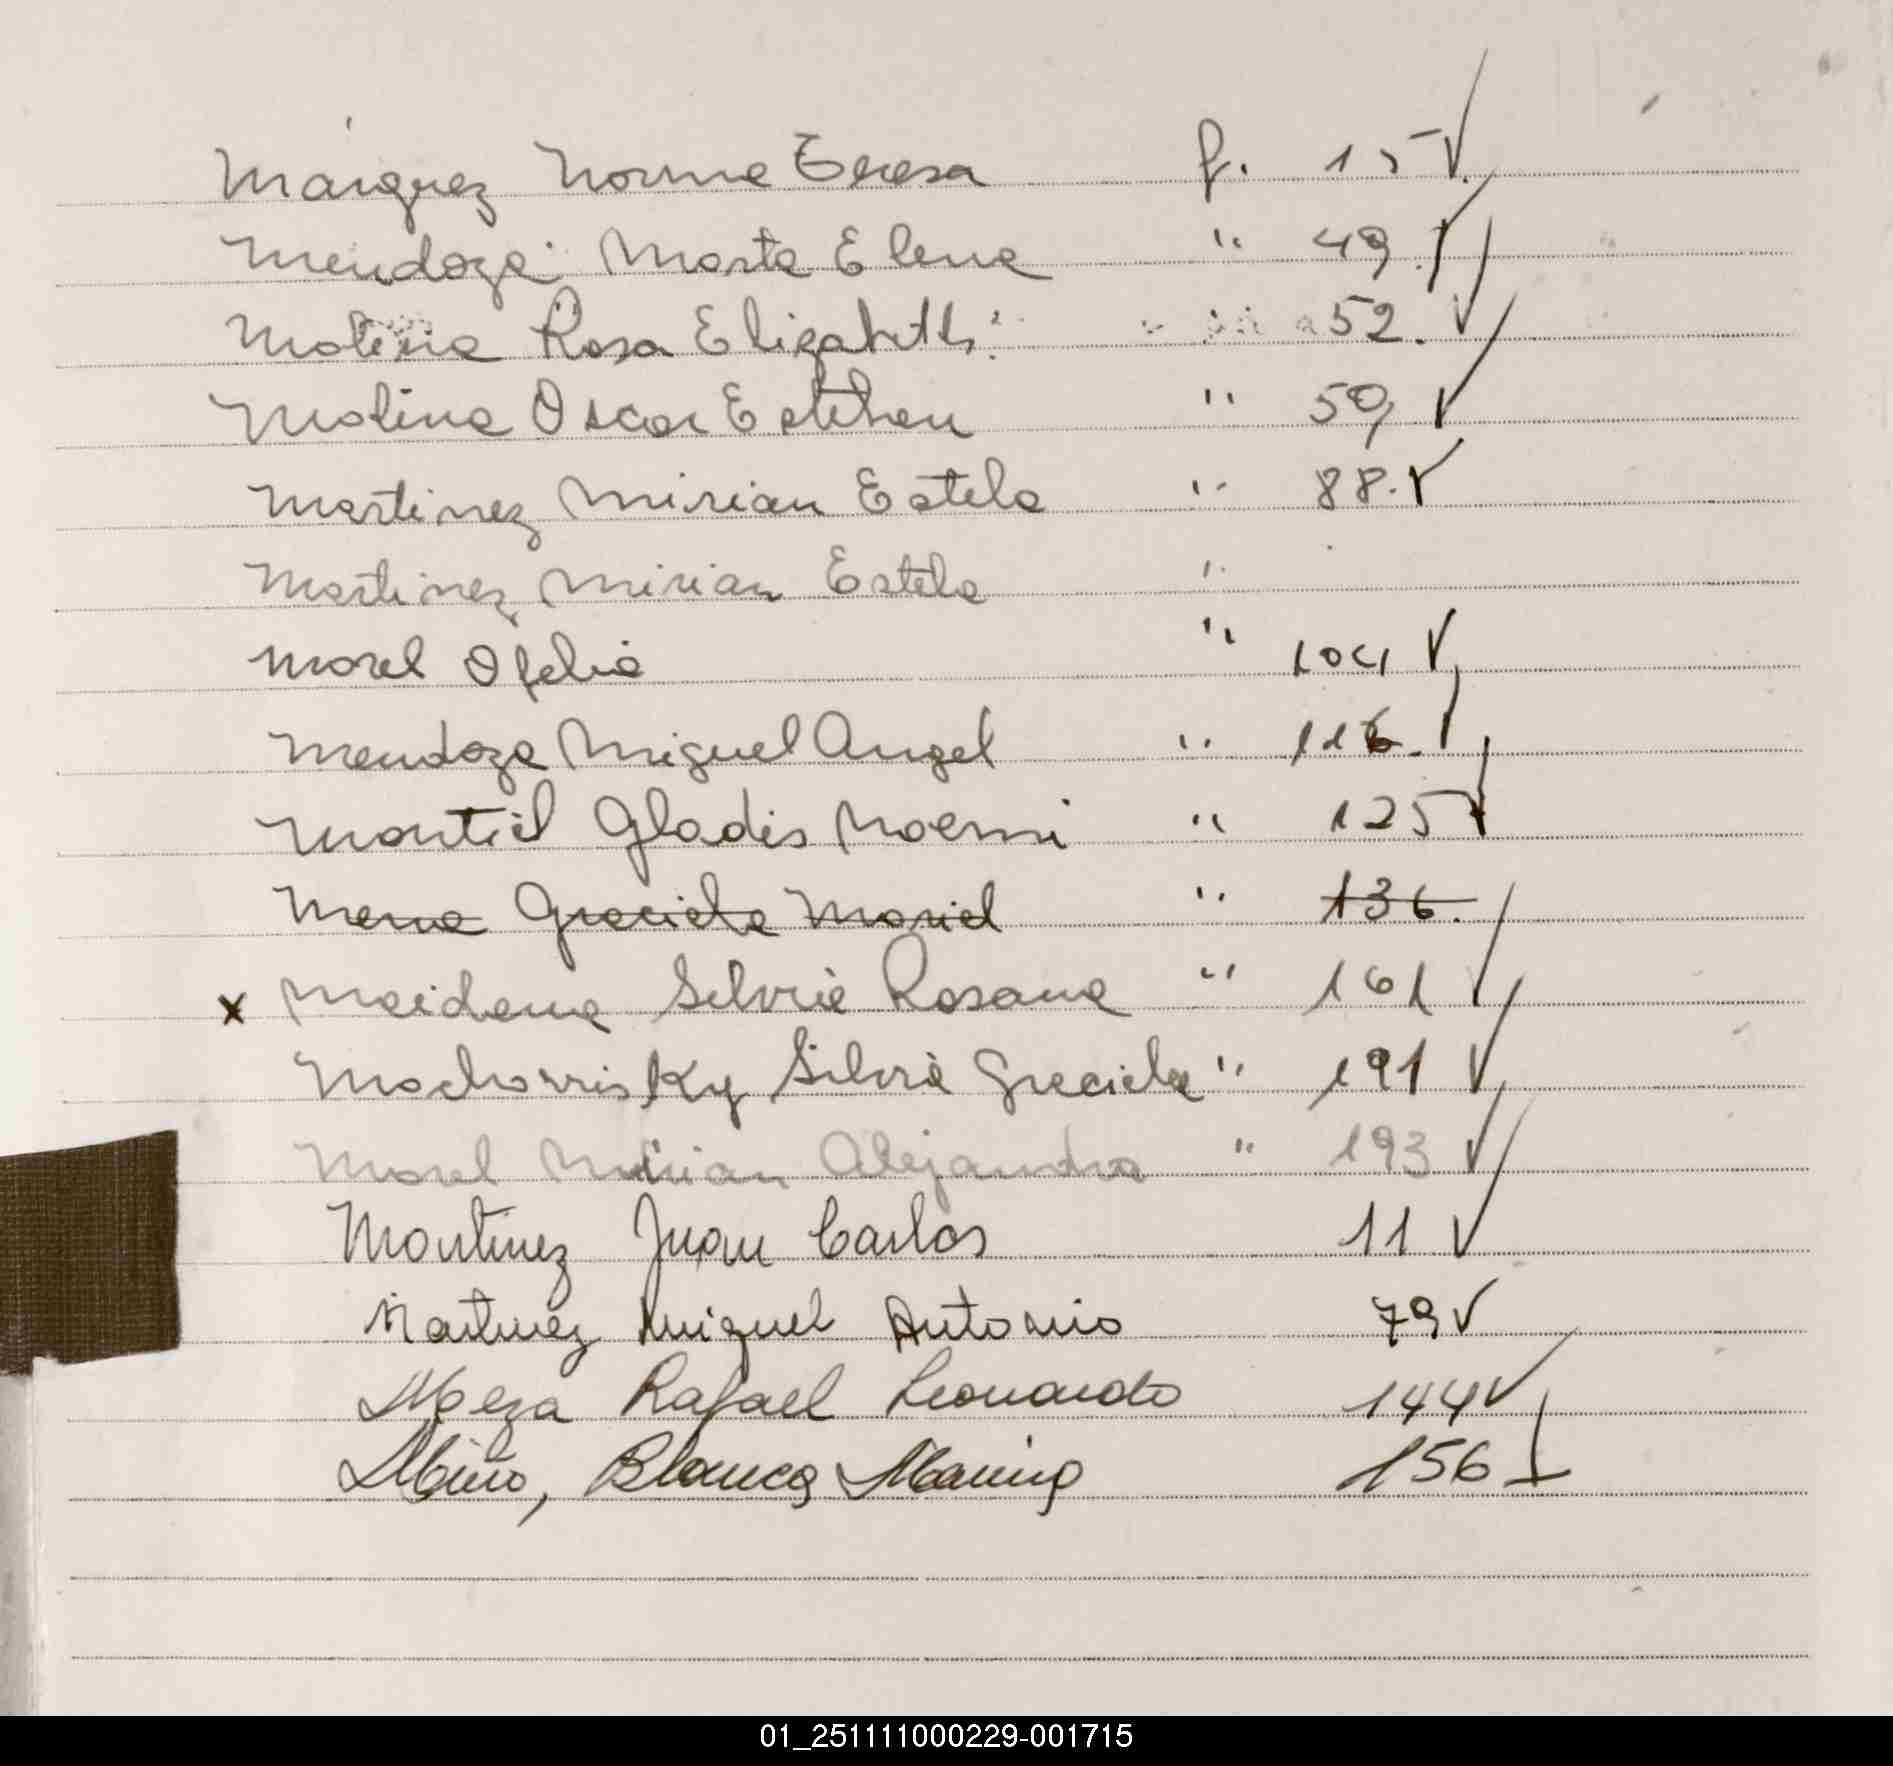 Márquez Norma Teresa f. 15 ✓
Mendoza Marta Elena " 49. ✓
Molina Rosa Elizabeth " 52. ✓
Molina Oscar Esteban " 59 ✓
Martinez Mirian Estela " 88. ✓
Martinez Mirian Estela "
Morel Ofelia " 104 ✓
Mendoza Miguel Angel " 116. ✓
Montiel Gladis Noemi " 125 ✓
Mena Graciela Mariel " 136.
x Maidana Silvia Rosana " 161 ✓
Mochorrisky Silvia Graciela " 191 ✓
Morel Mirian Alejandra " 193 ✓
Martinez Juan Carlos 11 ✓
Martinez Miguel Antonio 79 ✓
Meza Rafael Leonardo 144 ✓
Miño, Blanca Marina 156 ✓
01_251111000229-001715